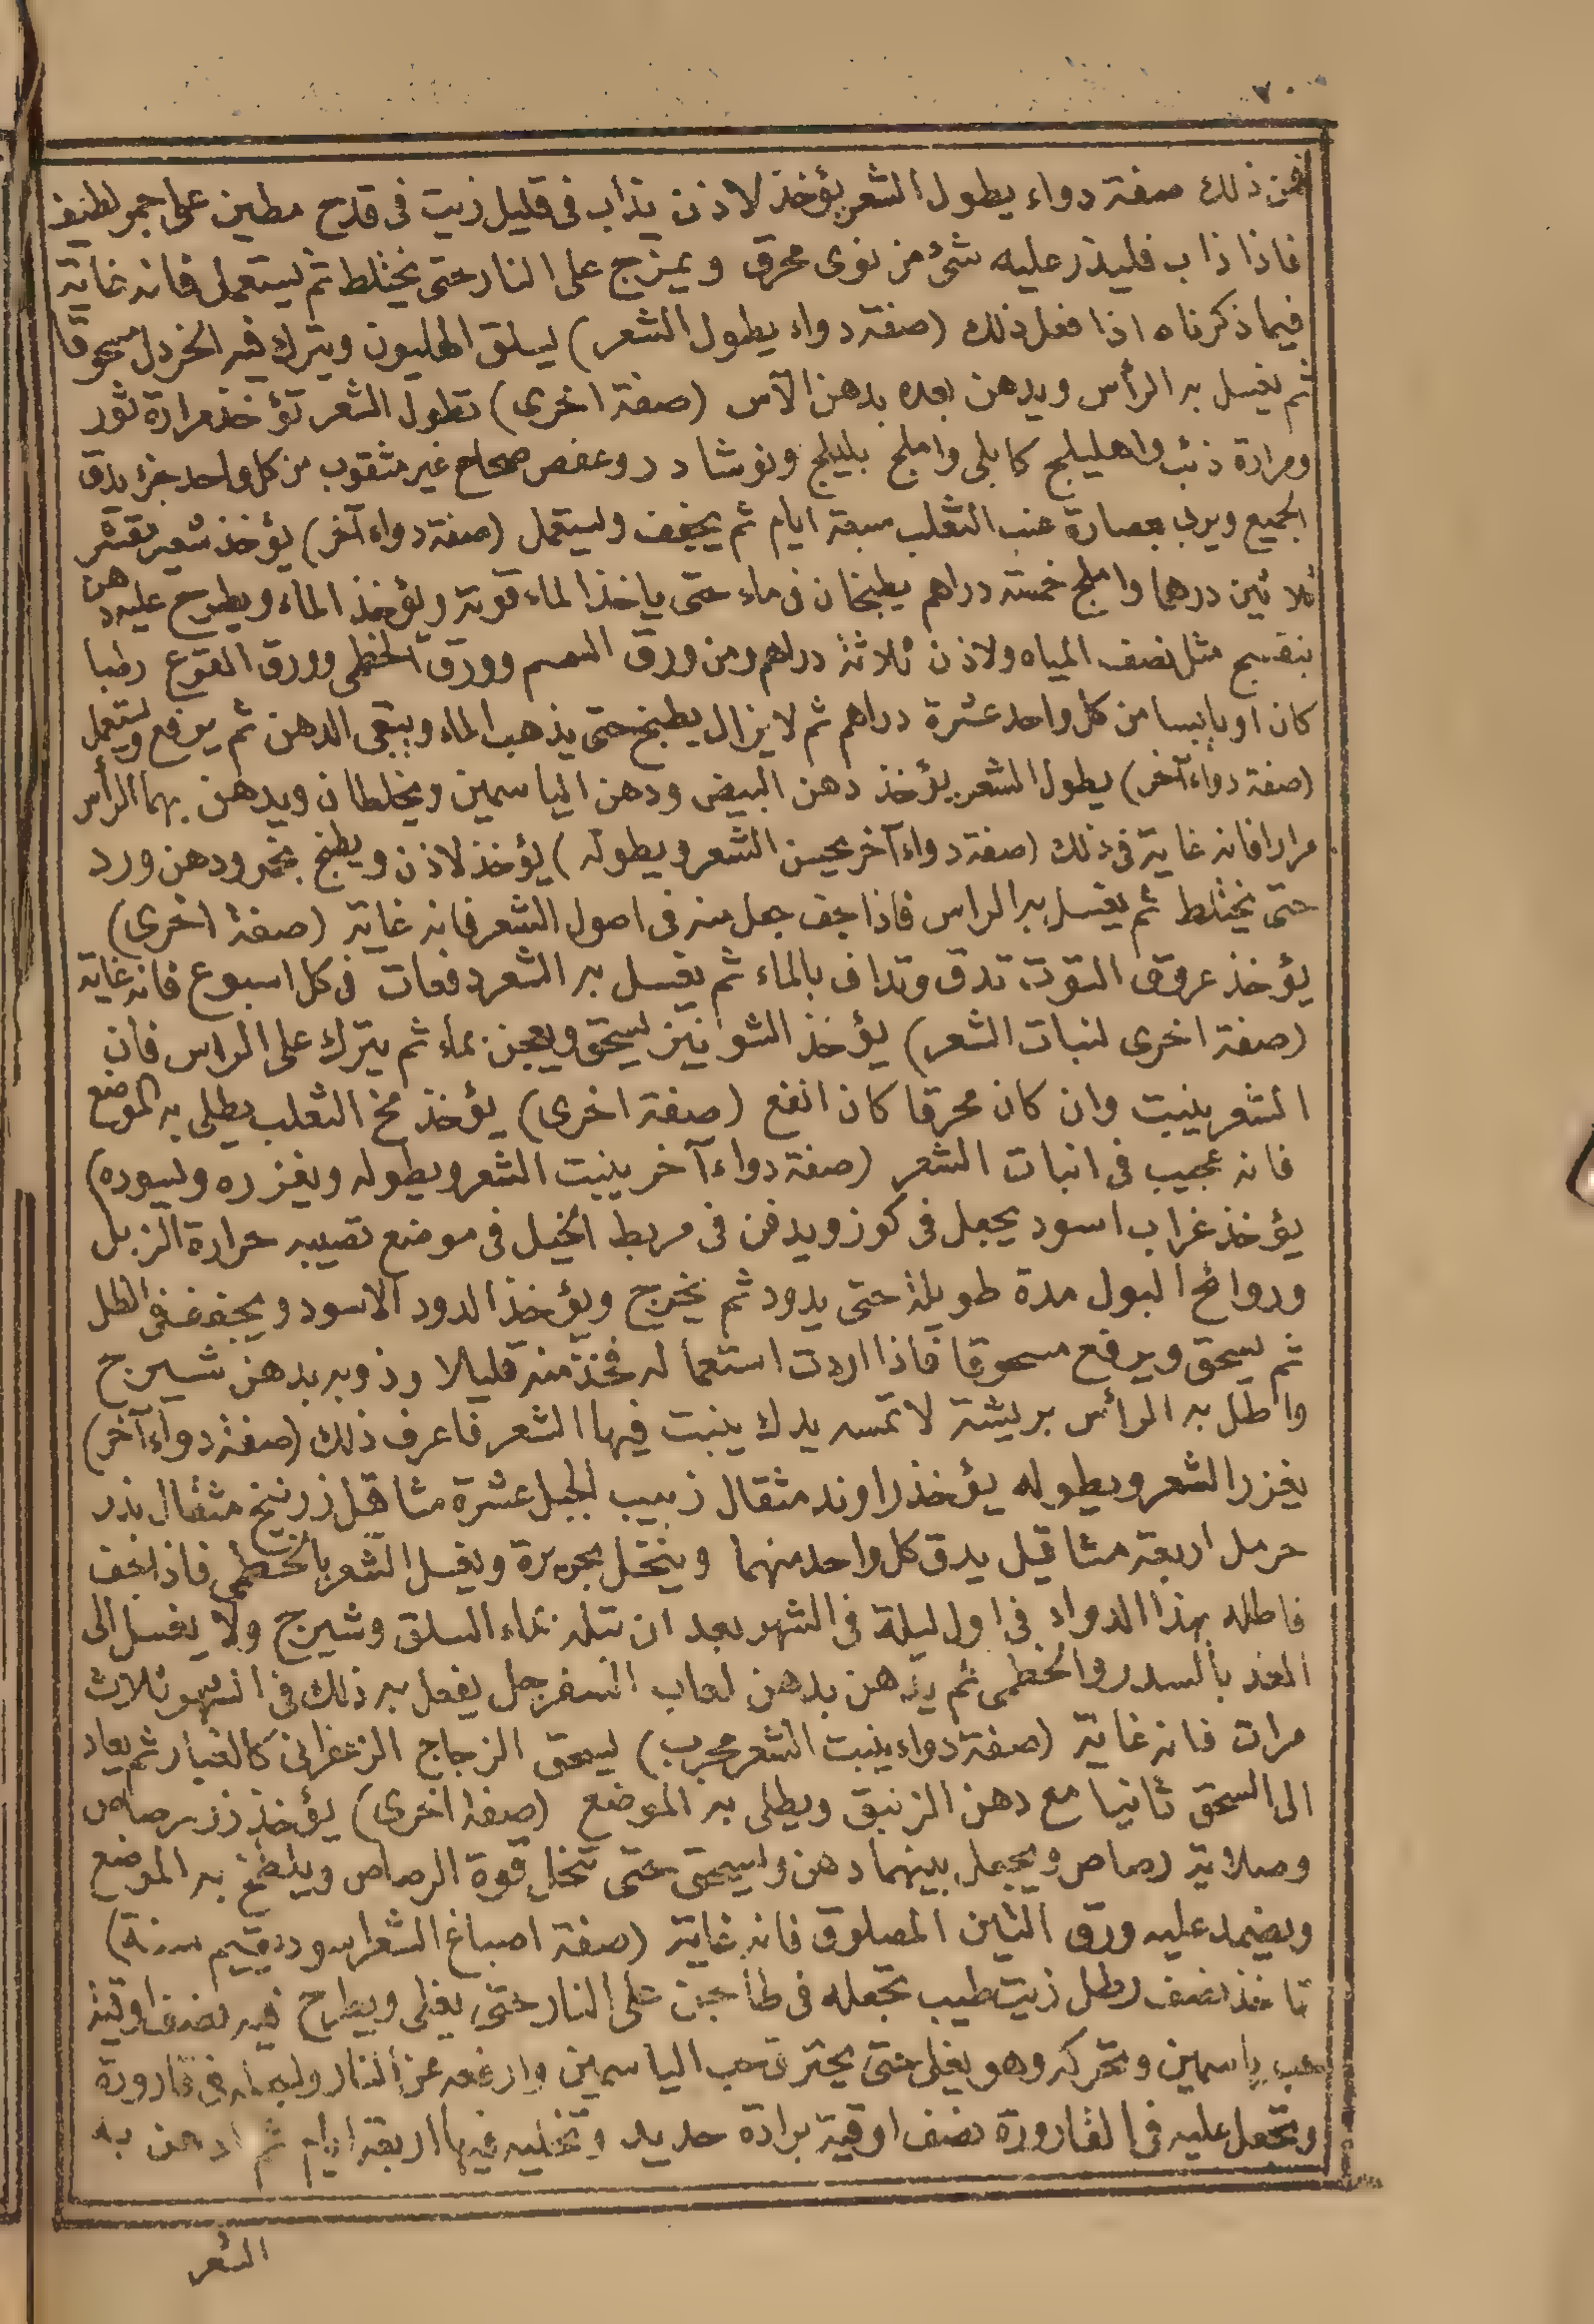 ٧٠
فمن ذلك صفة دواء يطول الشعر يؤخذ لاذن يذاب فى قليل زيت فى قدح مطين على جمر لطيف
فاذا ذاب فليذر عليه شئ من نوى محرق و يمزج على النار حتى يختلط ثم يستعمل فانه غاية
فيما ذكرناه اذا فعل ذلك (صفة دواء يطول الشعر) يسلق الهليون ويترك فيه الخردل مسحوقا
ثم يغسل به الرأس ويدهن بعده بدهن الآس (صفة اخرى) تطول الشعر تؤخذ مرارة ثور
ومرارة ذئب واهليلج كابلى واملج بليلج ونوشادر وعفص صحاح غير مثقوب من كل واحد جزء يدق
الجميع ويربى بعصارة عنب الثعلب سبعة ايام ثم يجفف ويستعمل (صفة دواء آخر) يؤخذ شعير مقشر
ثلاثين درهما واملج خمسة دراهم يطبخان فى ماء حتى ياخذ الماء قوته ويؤخذ الماء ويطرح عليه دهن
بنفسج مثل نصف المياه ولاذن ثلاثة دراهم ومن ورق السمسم وورق الخطمى وورق القرع رطبا
كان او يابسا من كل واحد عشرة دراهم ثم لا يزال يطبخ حتى يذهب الماء ويبقى الدهن ثم يرفع ويستعمل
(صفة دواء آخر) يطول الشعر يؤخذ دهن البيض ودهن الياسمين ويخلطان ويدهن بهما الرأس
مرارا فانه غاية فى ذلك (صفة دواء آخر يحسن الشعر ويطوله) يؤخذ لاذن ويطبخ بخمر ودهن ورد
حتى يختلط ثم يغسل به الراس فاذا جف جعل منه فى اصول الشعر فانه غاية (صفة اخرى)
يؤخذ عروق التوت تدق وتداف بالماء ثم يغسل به الشعر دفعات فى كل اسبوع فانه غاية
(صفة اخرى لنبات الشعر) يؤخذ الشونيز يسحق ويعجن بماء ثم يترك على الراس فان
الشعر ينبت وان كان محرقا كان انفع (صفة اخرى) يؤخذ مخ الثعلب يطلى به الموضع
فانه عجيب فى انبات الشعر (صفة دواء آخر ينبت الشعر ويطوله ويغزره ويسوده)
يؤخذ غراب اسود يجعل فى كوز ويدفن فى مربط الخيل فى موضع تصيبه حرارة الزبل
وروائح البول مدة طويلة حتى يدود ثم يخرج ويؤخذ الدود الاسود ويجفف فى الظل
ثم يسحق ويرفع مسحوقا فاذا اردت استعماله فخذ منه قليلا وذوبه بدهن شيرج
واطل به الرأس بريشة لا تمسه يدك ينبت فيها الشعر فاعرف ذلك (صفة دواء آخر)
يغزر الشعر ويطوله يؤخذ راوند مثقال زبيب الجبل عشرة مثاقل زرنيخ مثقال بذر
حرمل اربعة مثاقيل يدق كل واحد منهما وينخل بحريرة ويغسل الشعر بالخطمى فاذا جف
فاطله بهذا الدواء فى اول ليلة فى الشهر بعد ان تبله بماء السلق وشيرج ولا يغسل الى
الغد بالسدر والخطمى ثم يدهن بدهن لعاب السفرجل يفعل به ذلك فى الشهر ثلاث
مرات فانه غاية (صفة دواء ينبت الشعر مجرب) يسحق الزجاج الزعفرانى كالغبار ثم يعاد
الى السحق ثانيا مع دهن الزنبق ويطلى به الموضع (صفة اخرى) يؤخذ زر برصاص
وصلاية رصاص ويجعل بينهما دهن ويسحق حتى تنحل قوة الرصاص ويلطخ به الموضع
ويضمد عليه ورق التين المصلوق فانه غاية (صفة اصباغ الشعر اسود يقيم سنة)
تاخذ نصف رطل زيت طيب تجعله فى طاجن على النار حتى يغلى ويطرح فيه نصف اوقية
حب ياسمين وتحركه وهو يغلى حتى يحترق حب الياسمين وارفعه عن النار واجعله فى قارورة
وتجعل عليه فى القارورة نصف اوقية برادة حديد وتخليه فيها اربعة ايام ثم ادهن به
الشعر